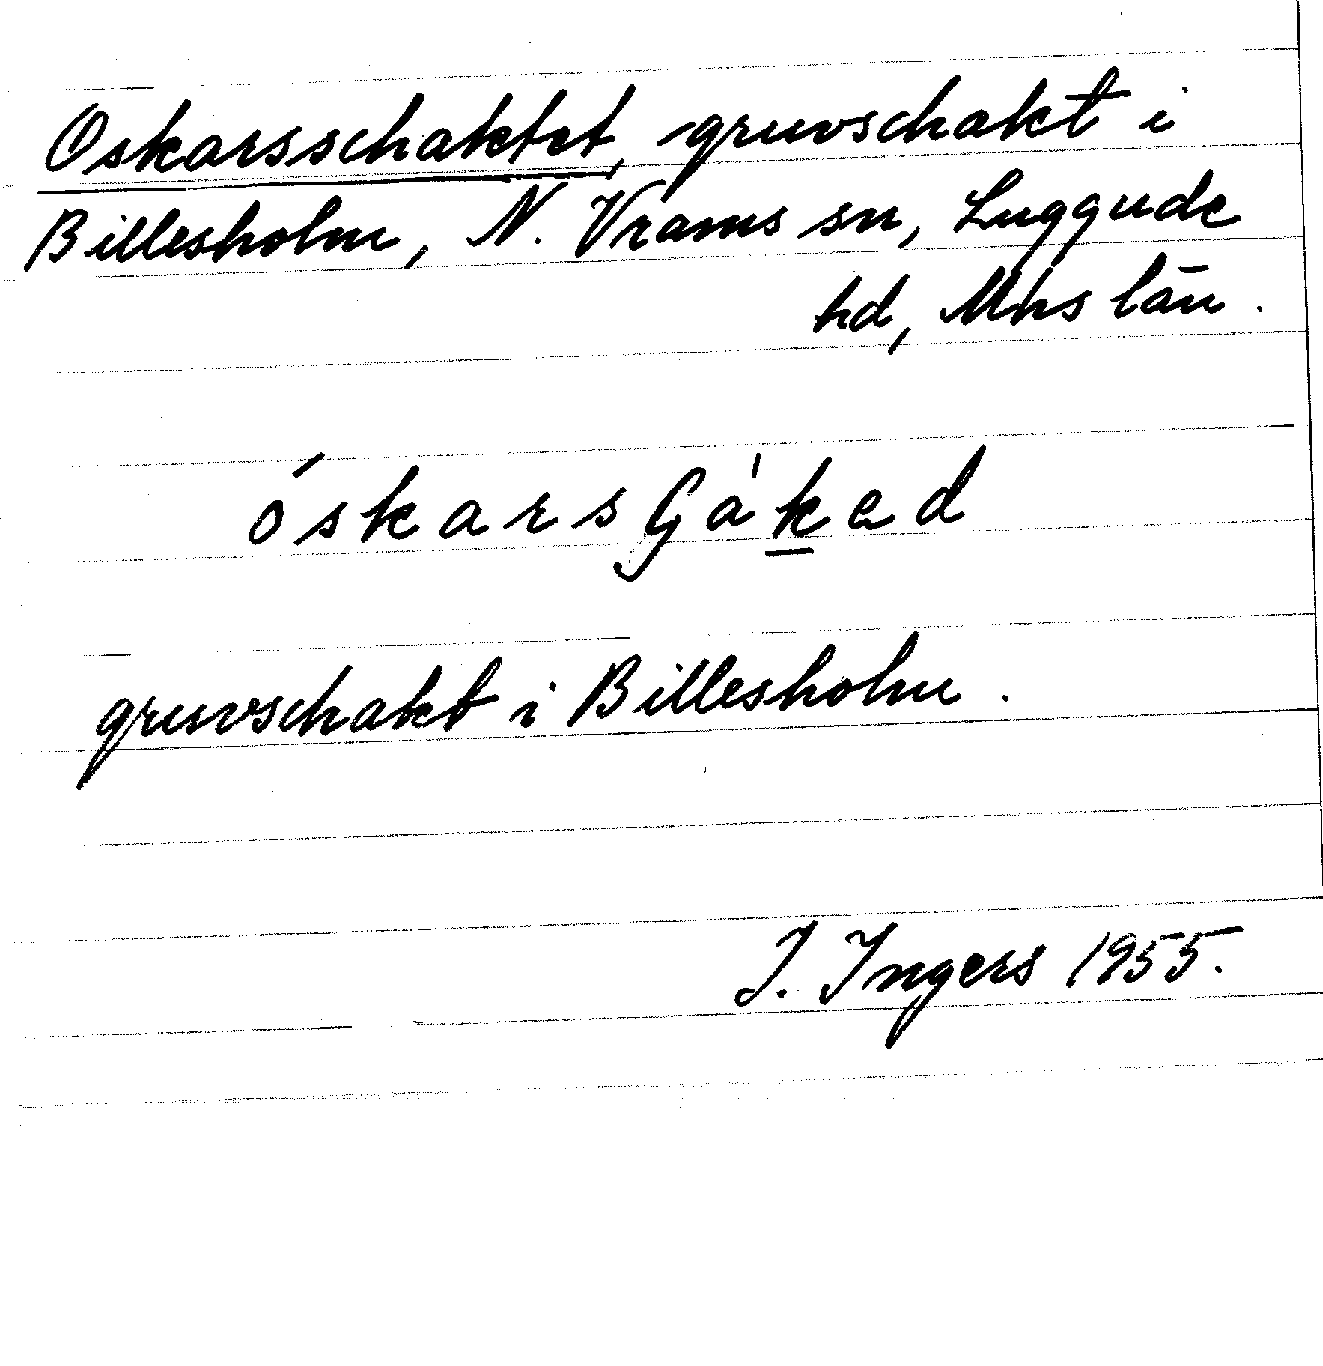 Oskarsschaktet, gruvschakt i
Billesholm, N. Vrams sn, Luggude
hd, Mhs län.
óskarsʃáḵad
gruvschakt i Billesholm.
I. Ingers 1955.